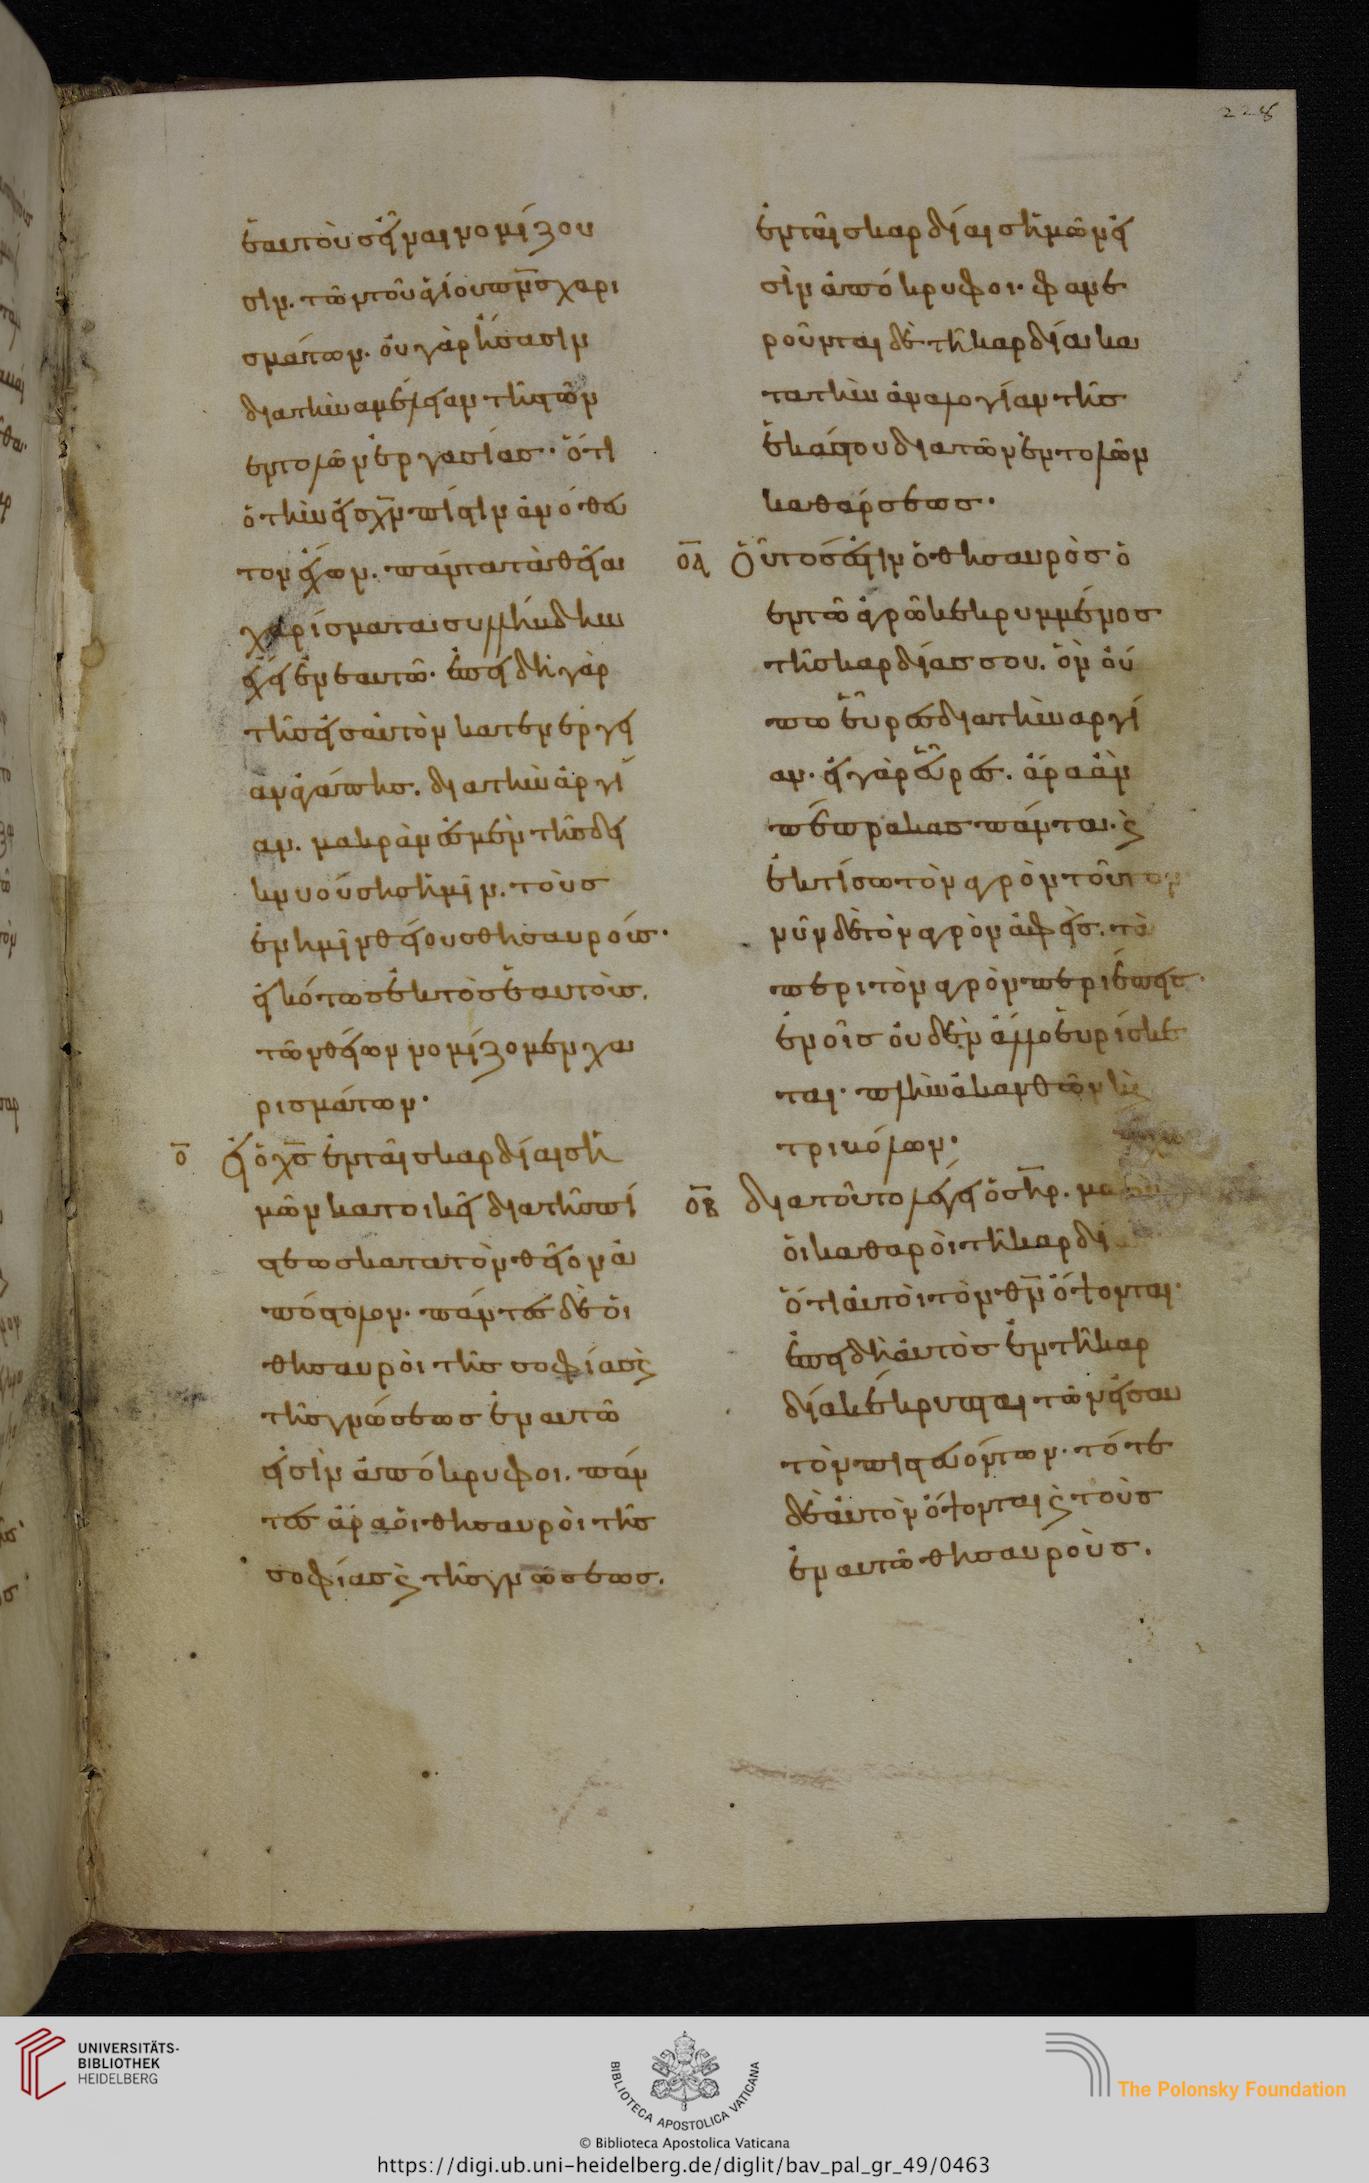 228
ἑαυτοὺς εἶναι νομίζου
σιν. τῶν τοῦ ἁγίου πν̅σ χαρι
σμάτων. οὐ γὰρ ἴσασιν
δια τὴν αμέλειαν τῆς τῶν
εντολῶν ἐργασίας. ὅτι
ὁ τὴν εἰς χν̅ πίστιν ἀνόθευ
τον ἔχων. πάντα τὰ θεῖα
χαρίσματα συλλήβδην
ἔχει ἐν εαυτῶ. ἐπειδὴ γὰρ
τῆς εἰς αὐτὸν κατ ενεργει
αν ἀγάπης. δια τὴν ἀργί
αν. μακρὰν ἐσμὲν τῆς δει
κνυούσης ἡμῖν. τοὺς
ἐν ἡμῖν θείους θησαυροίς.
εἰκότως ἐκτὸς ἑαυτοὺς.
τῶν θείων νομίζομεν χα
ρισμάτων.
ο̅ εἰ ὁ χσ̅ ἐν ταῖς καρδίαις ἡ
μῶν κατοικεῖ δια τῆς πί
στεως κατα τὸν θεῖον ἀ
πόστολον. πάντες δὲ ὁι
θησαυρὸι τῆς σοφίας ϗ
τῆς γνώσεως ἐν αυτῶ
εἰσὶν ἀπόκρυφοι. πάν
τες ἄρα ὁι θησαυρὸι τῆς
σοφίας ϗ τῆς γνώσεως.
ἐν ταῖς καρδίαις ἡμῶν εἰ
σὶν ἀπόκρυφοι. φανε
ροῦνται δὲ τῆ καρδία κα
τα τὴν ἀναλογίαν τῆς
ἑκάστου δια τῶν ἐντολῶν
καθάρσεως.
ο̅α Οὗτός ἐστιν ὁ θησαυρὸς ὁ
εν τῶ ἀγρῶ κεκρυμμένος
τῆς καρδίας σου. ὃν οὔ
πω εὗρες δια τὴν αργί
αν. εἰ γὰρ εὗρες. ἄρα ἂν
πέπρακας πάντα. ϗ
ἐκτίσω τὸν αγρὸν τοῦτον
νῦν δὲ τὸν αγρὸν ἀφεὶς. τὰ
περι τὸν αγρὸν περιέπεις.
ἐν οἷς οὐδὲν ἄλλο εὑρίσκε
ται. πλὴν ἀκανθῶν ϗ
τριβόλων.
ο̅β δια τοῦτο λέγει ὁ ση̅ρ.
ὁι καθαρὸι τῆ καρδία
ὅτι ἀυτὸι τὸν θν̅ ὄψονται.
ἐπειδὴ ἀυτὸς ἐν τῆ καρ
δία κέκρυπται τῶν εἰς αυ
τὸν πιστευόντων. τότε
δὲ ἀυτὸν ὄψονται ϗ τοὺς
ἐν αυτῶ θησαυροὺς.
UNIVERSITÄTS-
BIBLIOTHEK
HEIDELBERG
BIBLIOTECA APOSTOLICA VATICANA
The Polonsky Foundation
© Biblioteca Apostolica Vaticana
https://digi.ub.uni-heidelberg.de/diglit/bav_pal_gr_49/0463